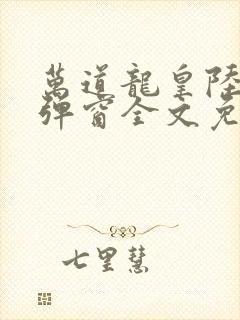 萬道龍皇陸
彈窗全文免
七里慧